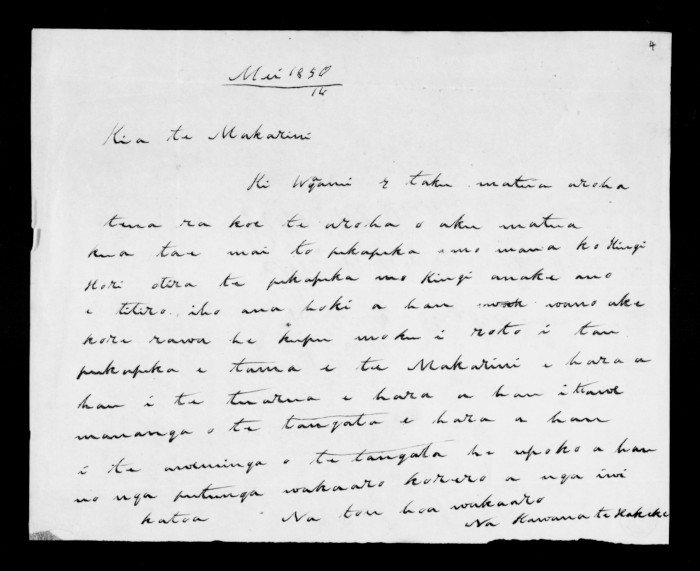 4
Mei 1850
14
Kia te Makarini
Ki Wganui e taku matua aroha
tena ra koe te aroha o aku matua
kua tae mai to pukapuka mo maua ko Kingi
Hori otira te pukapuka mo Kingi anake ano
e titiro iho ana hoki a hau wano ake
kore rawa he kupu moku i roto i tau
pukapuka e tama e te Makarini e hara a
hau i te tuarua e hara a hau i te
mananga o te tangata e hara a hau
i te o te tangata he upoko a hau
no nga putunga wakaaro korero a nga iwi
katoa Na tou hoa wakaaro
Na Kawana te Hakeke